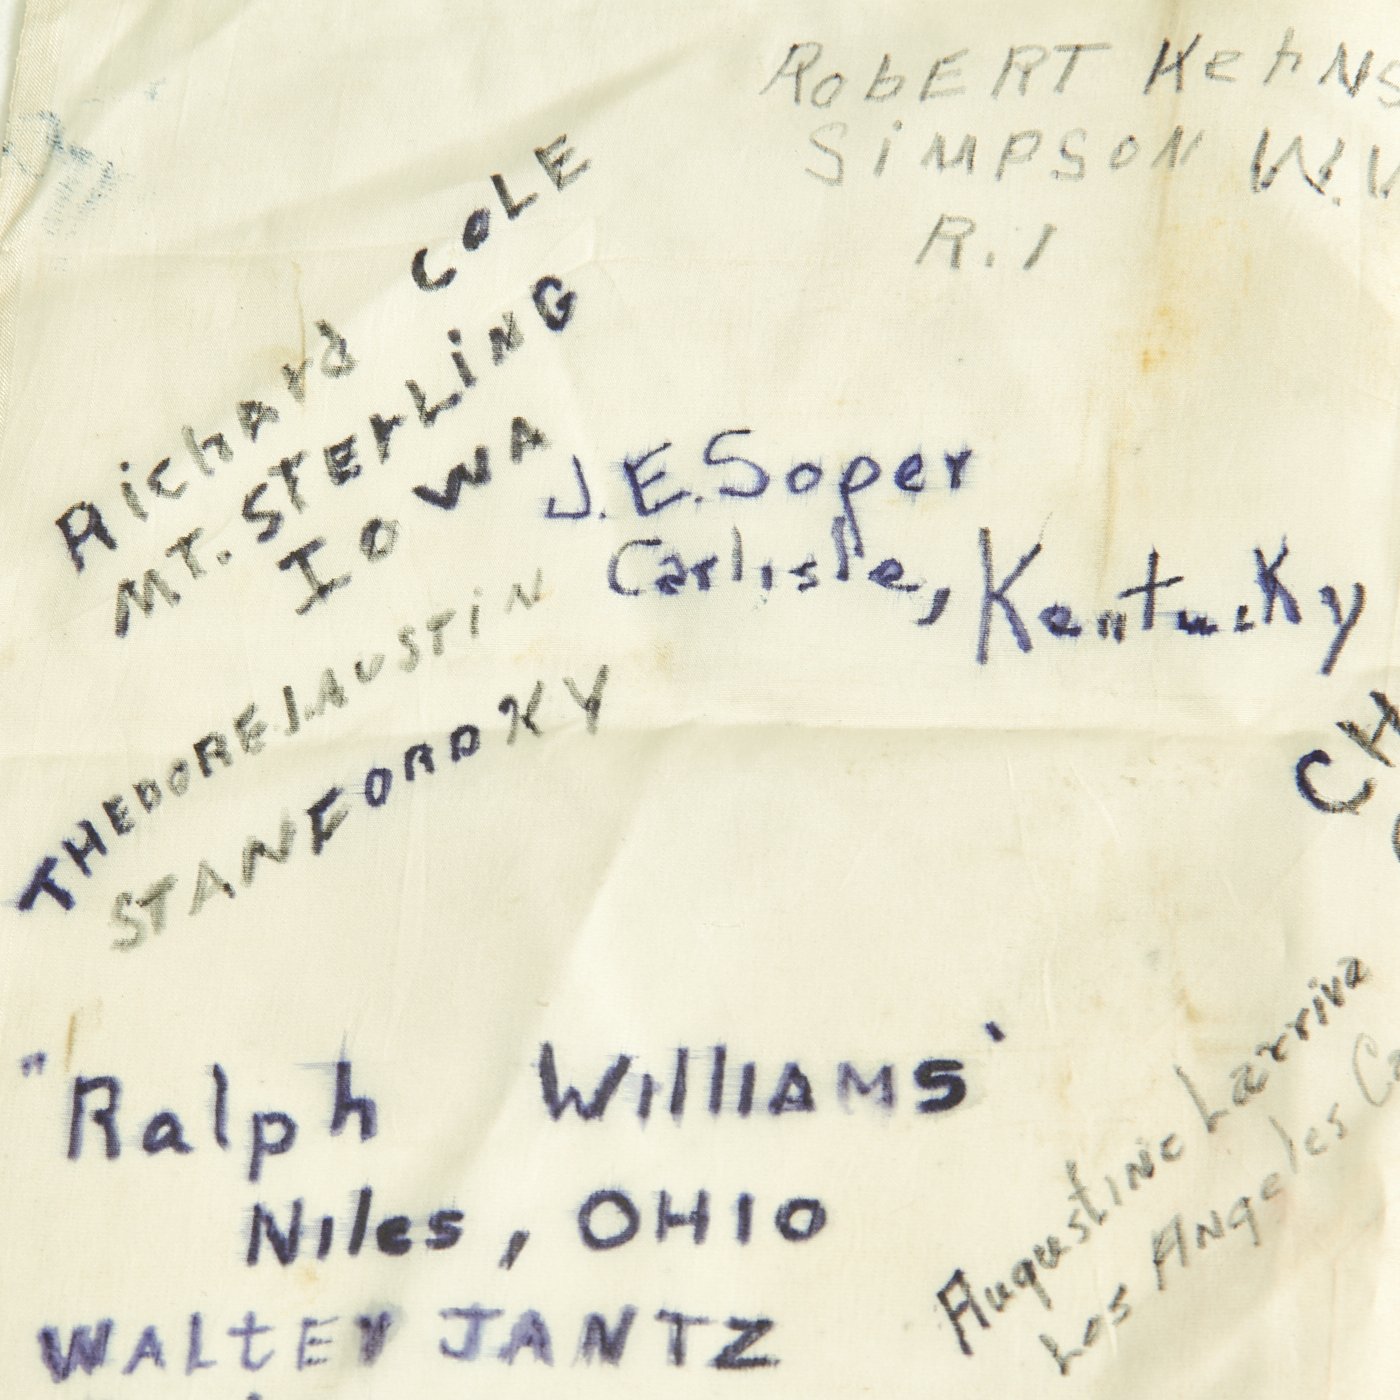 ROBERT KehNS
SIMPSON W.V
R.1
Richard COLE
MT. STERLING
IOWA
J.E. Soper
Carlisle, Kentucky
THEDORE J. AUSTIN
STANFORD KY
CH
"Ralph Williams"
Niles, OHIO
Augustine Larriva
Los Angeles Ca
WALtER JANTZ